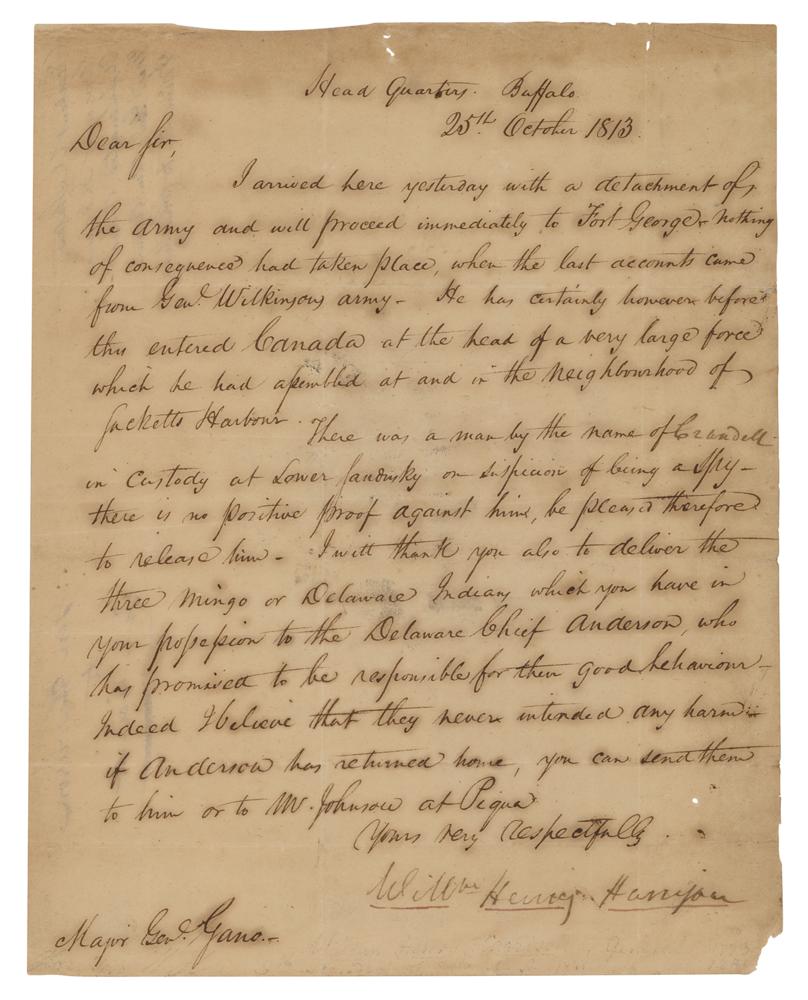 Head Quarters. Buffalo
25th October 1813.
Dear Sir,
I arrived here yesterday with a detachment of
the army and will proceed immediately to Fort George - Nothing
of consequence had taken place, when the last accounts came
from Genl. Wilkinsons army - He has certainly however before
this entered Canada at the head of a very large force
which he had assembled at and in the Neighbourhood of
Sacketts Harbour.
There was a man by the name of Crandell
in Custody at Lower Sandusky on suspicion of being a Spy -
there is no positive proof against him, be pleased therefore
to release him - I will thank you also to deliver the
three Mingo or Delaware Indians which you have in
your possession to the Delaware Chief Anderson, who
has promised to be responsible for their good behaviour -
Indeed I believe that they never intended any harm -
if Anderson has returned home, you can send them
to him or to Mr. Johnson at Piqua
Yours very respectfully.
Willm Henry Harrison
Major Genl. Gano.-